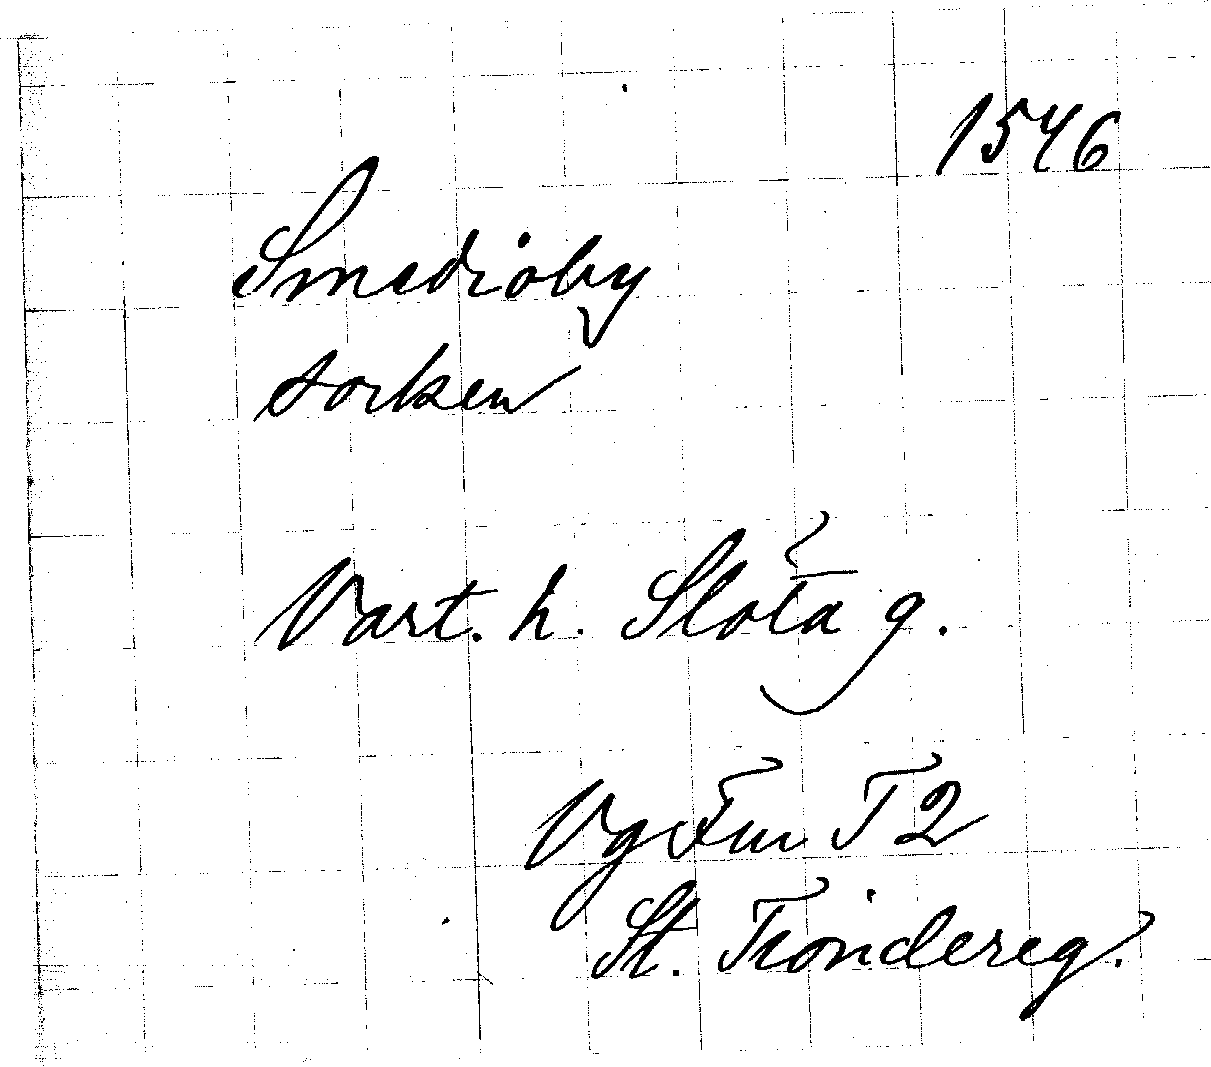 1546
Smediöby
socken
Vart. h. Slöta g.
Vg Fur T 2
St. Tiondereg.